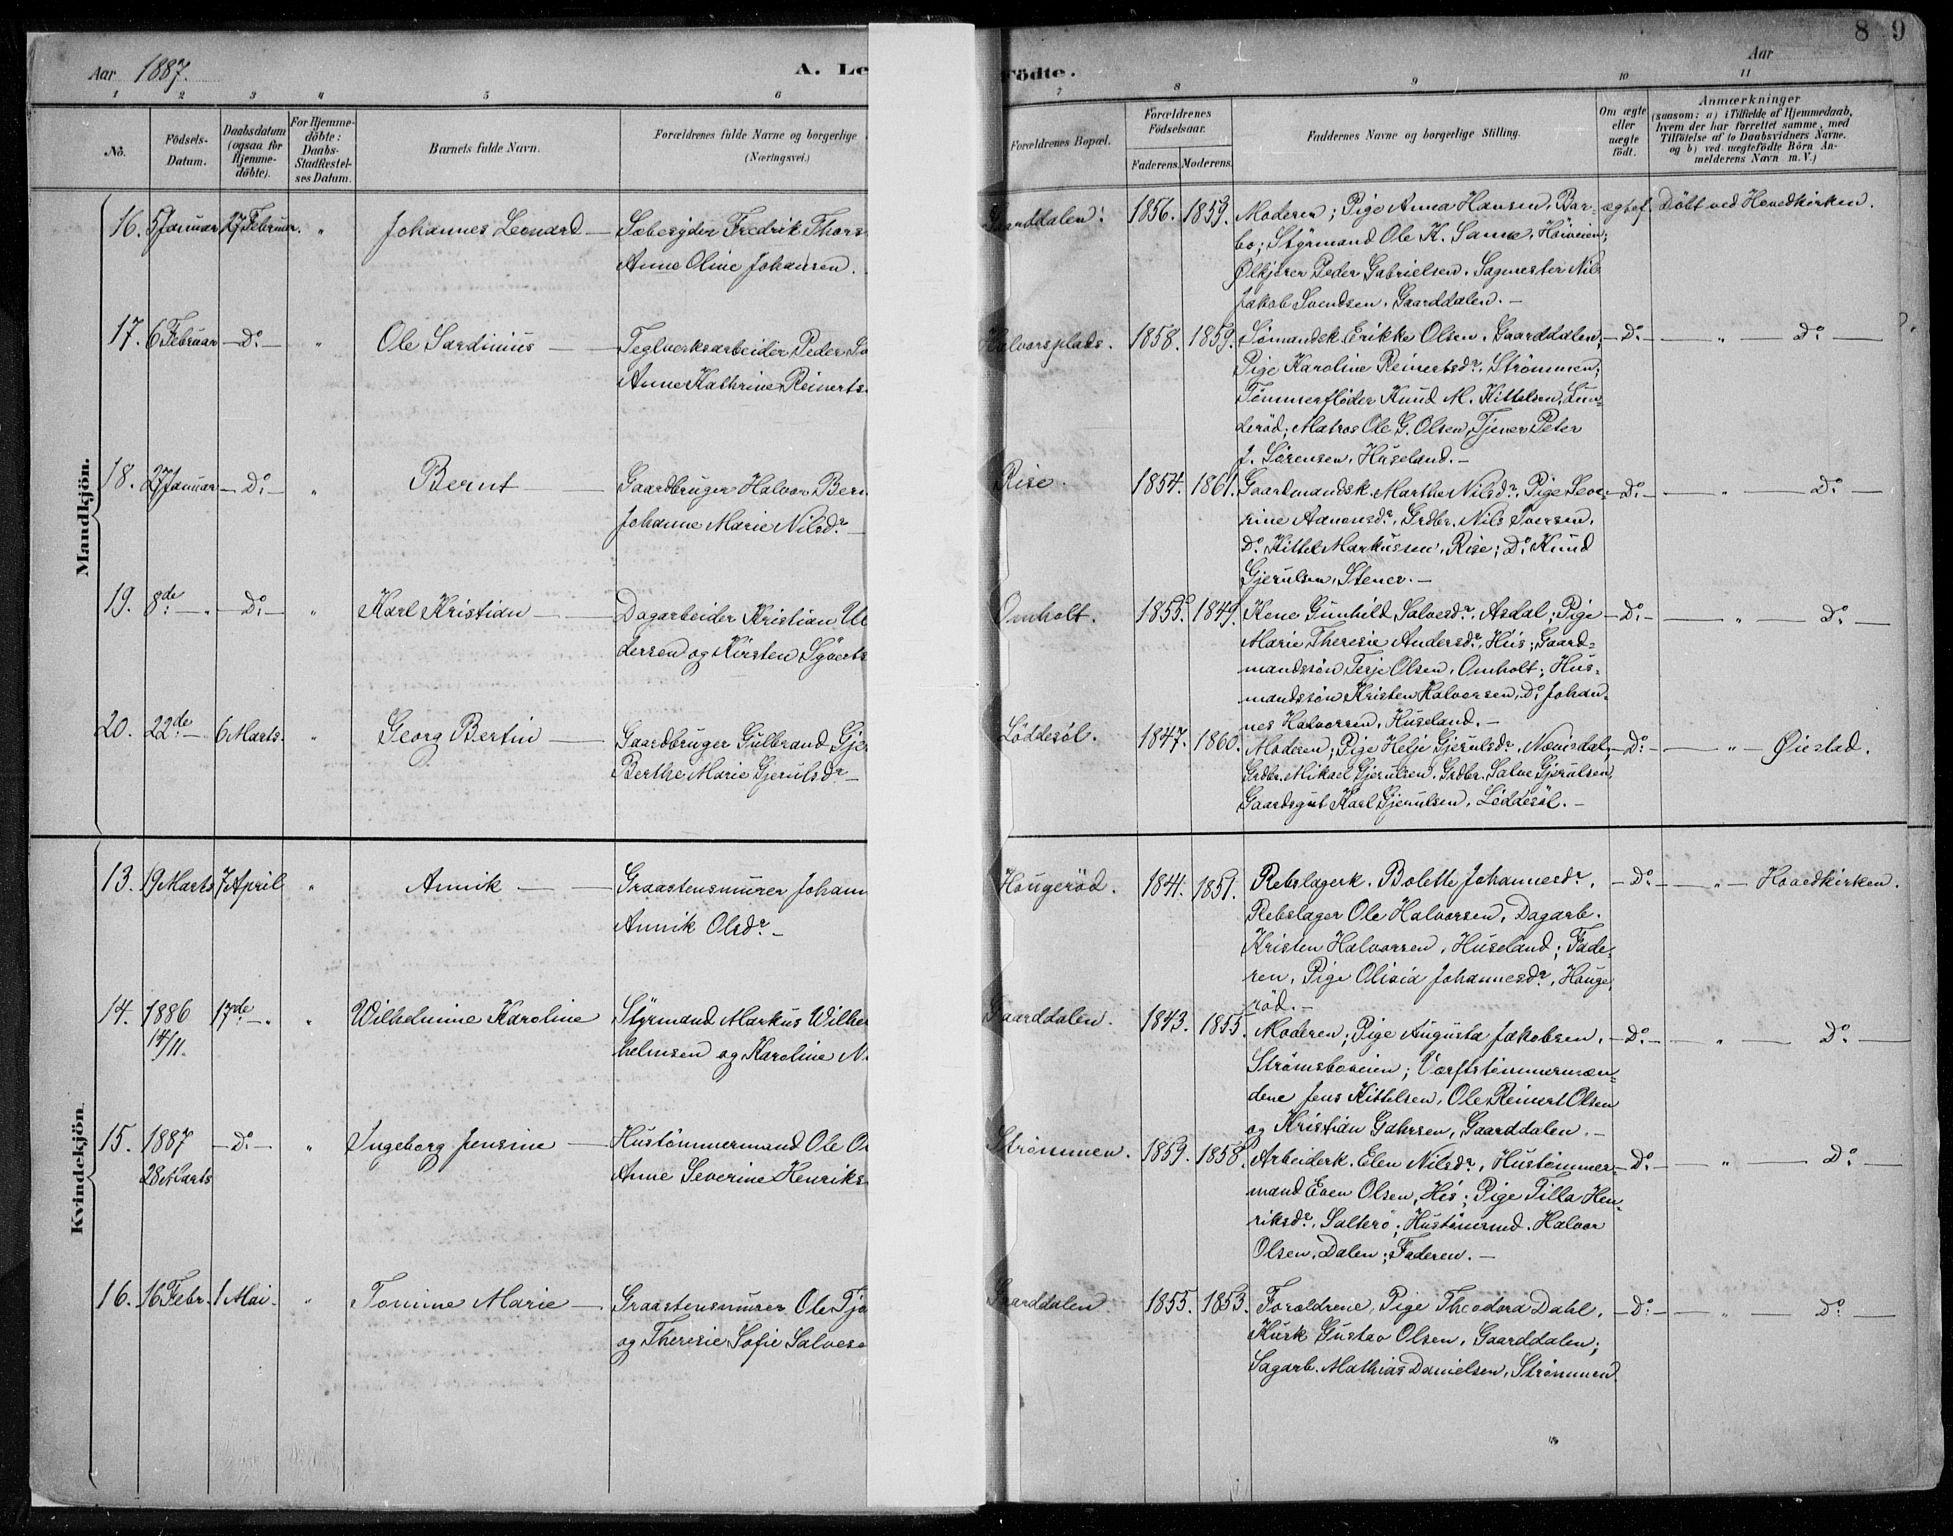 8 9
Aar 1887.
A. Le
Födte.
Aar
1 2 3 4 5 6 7 8 9 10 11
No.
Födsels-Datum.
Daabsdatum (ogsaa for Hjemmedöbte).
For Hjemmedöbte: Daabs-Stadfæstelses Datum.
Barnets fulde Navn.
Forældrenes fulde Navne og borgerlige
(Næringsvei.)
Forældrenes Bopæl.
Forældrenes Födselsaar.
Faderens. Moderens.
Faddernes Navne og borgerlige Stilling.
Om ægte eller uægte födt.
Anmærkninger
(saasom: a) i Tilfælde af Hjemmedaab, hvem der har forrettet samme, med Tilföielse af to Daabsvidners Navne. og b) ved uægtefödte Börn Anmelderens Navn m. V.)
Mandkjön.
16. 5 Januar 27 Februar. " Johannes Leonard — Sæbesyder Fredrik Thors
Anne Oline Johansen.
Gaarddalen. 1856. 1859. Moderen; Pige Anna Hansen, Bar-
bo; Styrmand Ole K. Same, Höiveien;
Ølkjører Peder Gabrielsen. Sagmester Nils
Jakob Svendsen, Gaarddalen. —
ægtef. Döbt ved Hovedkirken.
17. 6 Februar — Do — " Ole Sardinius — Teglverksarbeider Peder
Anne Kathrine Reinerts
Halvorsplads. 1858. 1859. Sømandsk. Erikke Olsen, Gaarddalen;
Pige Karoline Reinertsdr, Strømmen;
Tømmerfløder Knud M. Kittelsen, Lun-
derød; Matros Ole G. Olsen, Tjener Peter
J. Sørensen, Huseland. —
— Do — — " — Do —
18. 27 Januar — Do — " Bernt — Gaardbruger Halvor Ber
Johanne Marie Nilsdr —
Rise. 1854. 1861. Gaardmandsk. Marthe Nilsdr, Pige Seve-
rine Aanonsdr, Grdbr. Nils Iversen,
Do Kittel Markussen, Rise; Do Knud
Gjerulsen, Stener. —
— Do — — " — Do —
19. 8de — " — Do — " Karl Kristian — Dagarbeider Kristian
dersen og Kirsten Sÿverts
Omholt. 1855. 1849. Kone Gunhild Salvesdr, Asdal; Pige
Marie Theresie Andersdr, His; Gaard-
mandssøn Terje Olsen, Omholt; Hus-
mandssøn Kristen Halvorsen, Do Johan-
nes Halvorsen, Huseland. —
— Do — — " — Do —
20. 22de — 6 Marts. " Georg Bertin — Gaardbruger Gulbrand Gje
Berthe Marie Gjerulsdr —
Löddesöl. 1847. 1860. Moderen; Pige Helje Gjerulsdr, Næsisdal;
Grdbr. Mikael Gjerulsen. Grdbr. Salve Gjerulsen,
Gaardsgut Karl Gjerulsen, Löddesöl. —
— Do — — " — Øiestad.
Kvindekjön.
13. 19 Marts 7 April " Annik — Graastensmurer Johann
Annik Olsdr —
Hougerød. 1841. 1851. Rebslagerk. Bolette Johannesdr,
Rebslager Ole Halvorsen, Dagarb.
Kristen Halvorsen, Huseland; Fade-
ren, Pige Olivia Johannesdr, Houge
rød. —
— Do — — " — Hovedkirken.
14. 1886 14/11. 17de — " " Wilhelmine Karoline Styrmand Markus Wilhe
helmsen og Karoline N
Gaarddalen. 1843. 1855. Moderen; Pige Augusta Jakobsen,
Strømsboveien; Værftstømmermæn-
dene Jens Kittelsen, Ole Reinert Olsen
og Kristian Gahrsen, Gaarddalen. —
— Do — — " — Do —
15. 1887 28 Marts — Do — " Ingeborg Jensine — Hustømmermand Ole O
Anne Severine Henriks
Strømmen. 1859. 1858. Arbeiderk. Elen Nilsdr, Hustømmer-
mand Even Olsen, His; Pige Tilla Hen-
riksdr, Salterø; Hustømrmd. Halvor
Olsen, Dalen; Faderen. —
— Do — — " — Do —
16. 16 Febr. 1 Mai. " Tomine Marie — Graastensmurer Ole Tjo
og Theresie Sofie Salvese
Gaarddalen. 1855. 1853. Forældrene, Pige Theodora Dahl,
Kusk Gustav Olsen, Gaarddalen;
Sagarb. Mathias Danielsen, Strømmen.
— Do — — " — Do —